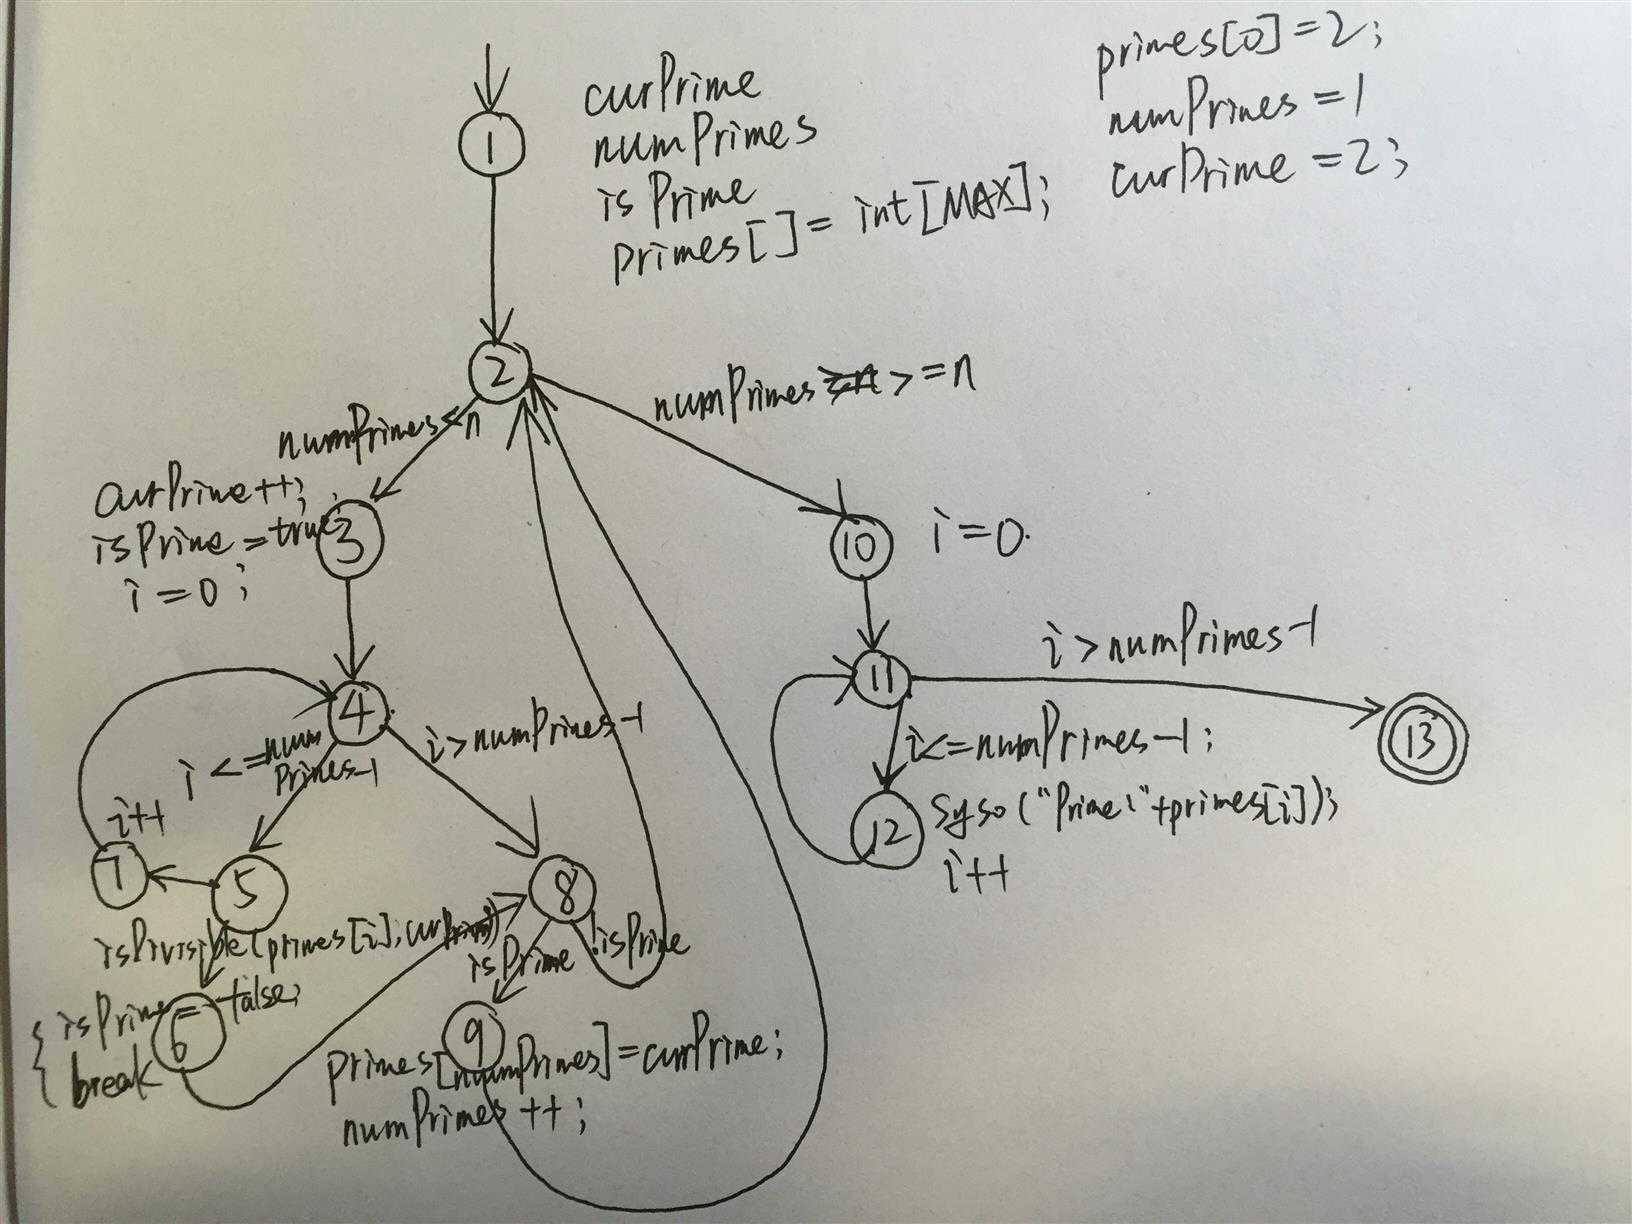 1
curPrime
numPrimes
isPrime
primes[ ] = int[MAX];
primes[0]=2;
numPrimes =1
curPrime =2;
2
numPrimes<n
numPrimes >=n
curPrime++;
isPrime=true;
i=0;
3
10
i=0.
4
i<=numPrimes-1
i>numPrimes-1
11
i>numPrimes-1
13
i<=numPrimes-1;
12
syso("Prime:"+primes[i]);
i++
i++
7
5
8
isDivisible(primes[i],curPrime)
isPrime
!isPrime
6
{ isPrime = false;
break
9
primes[numPrimes]=curPrime;
numPrimes ++;